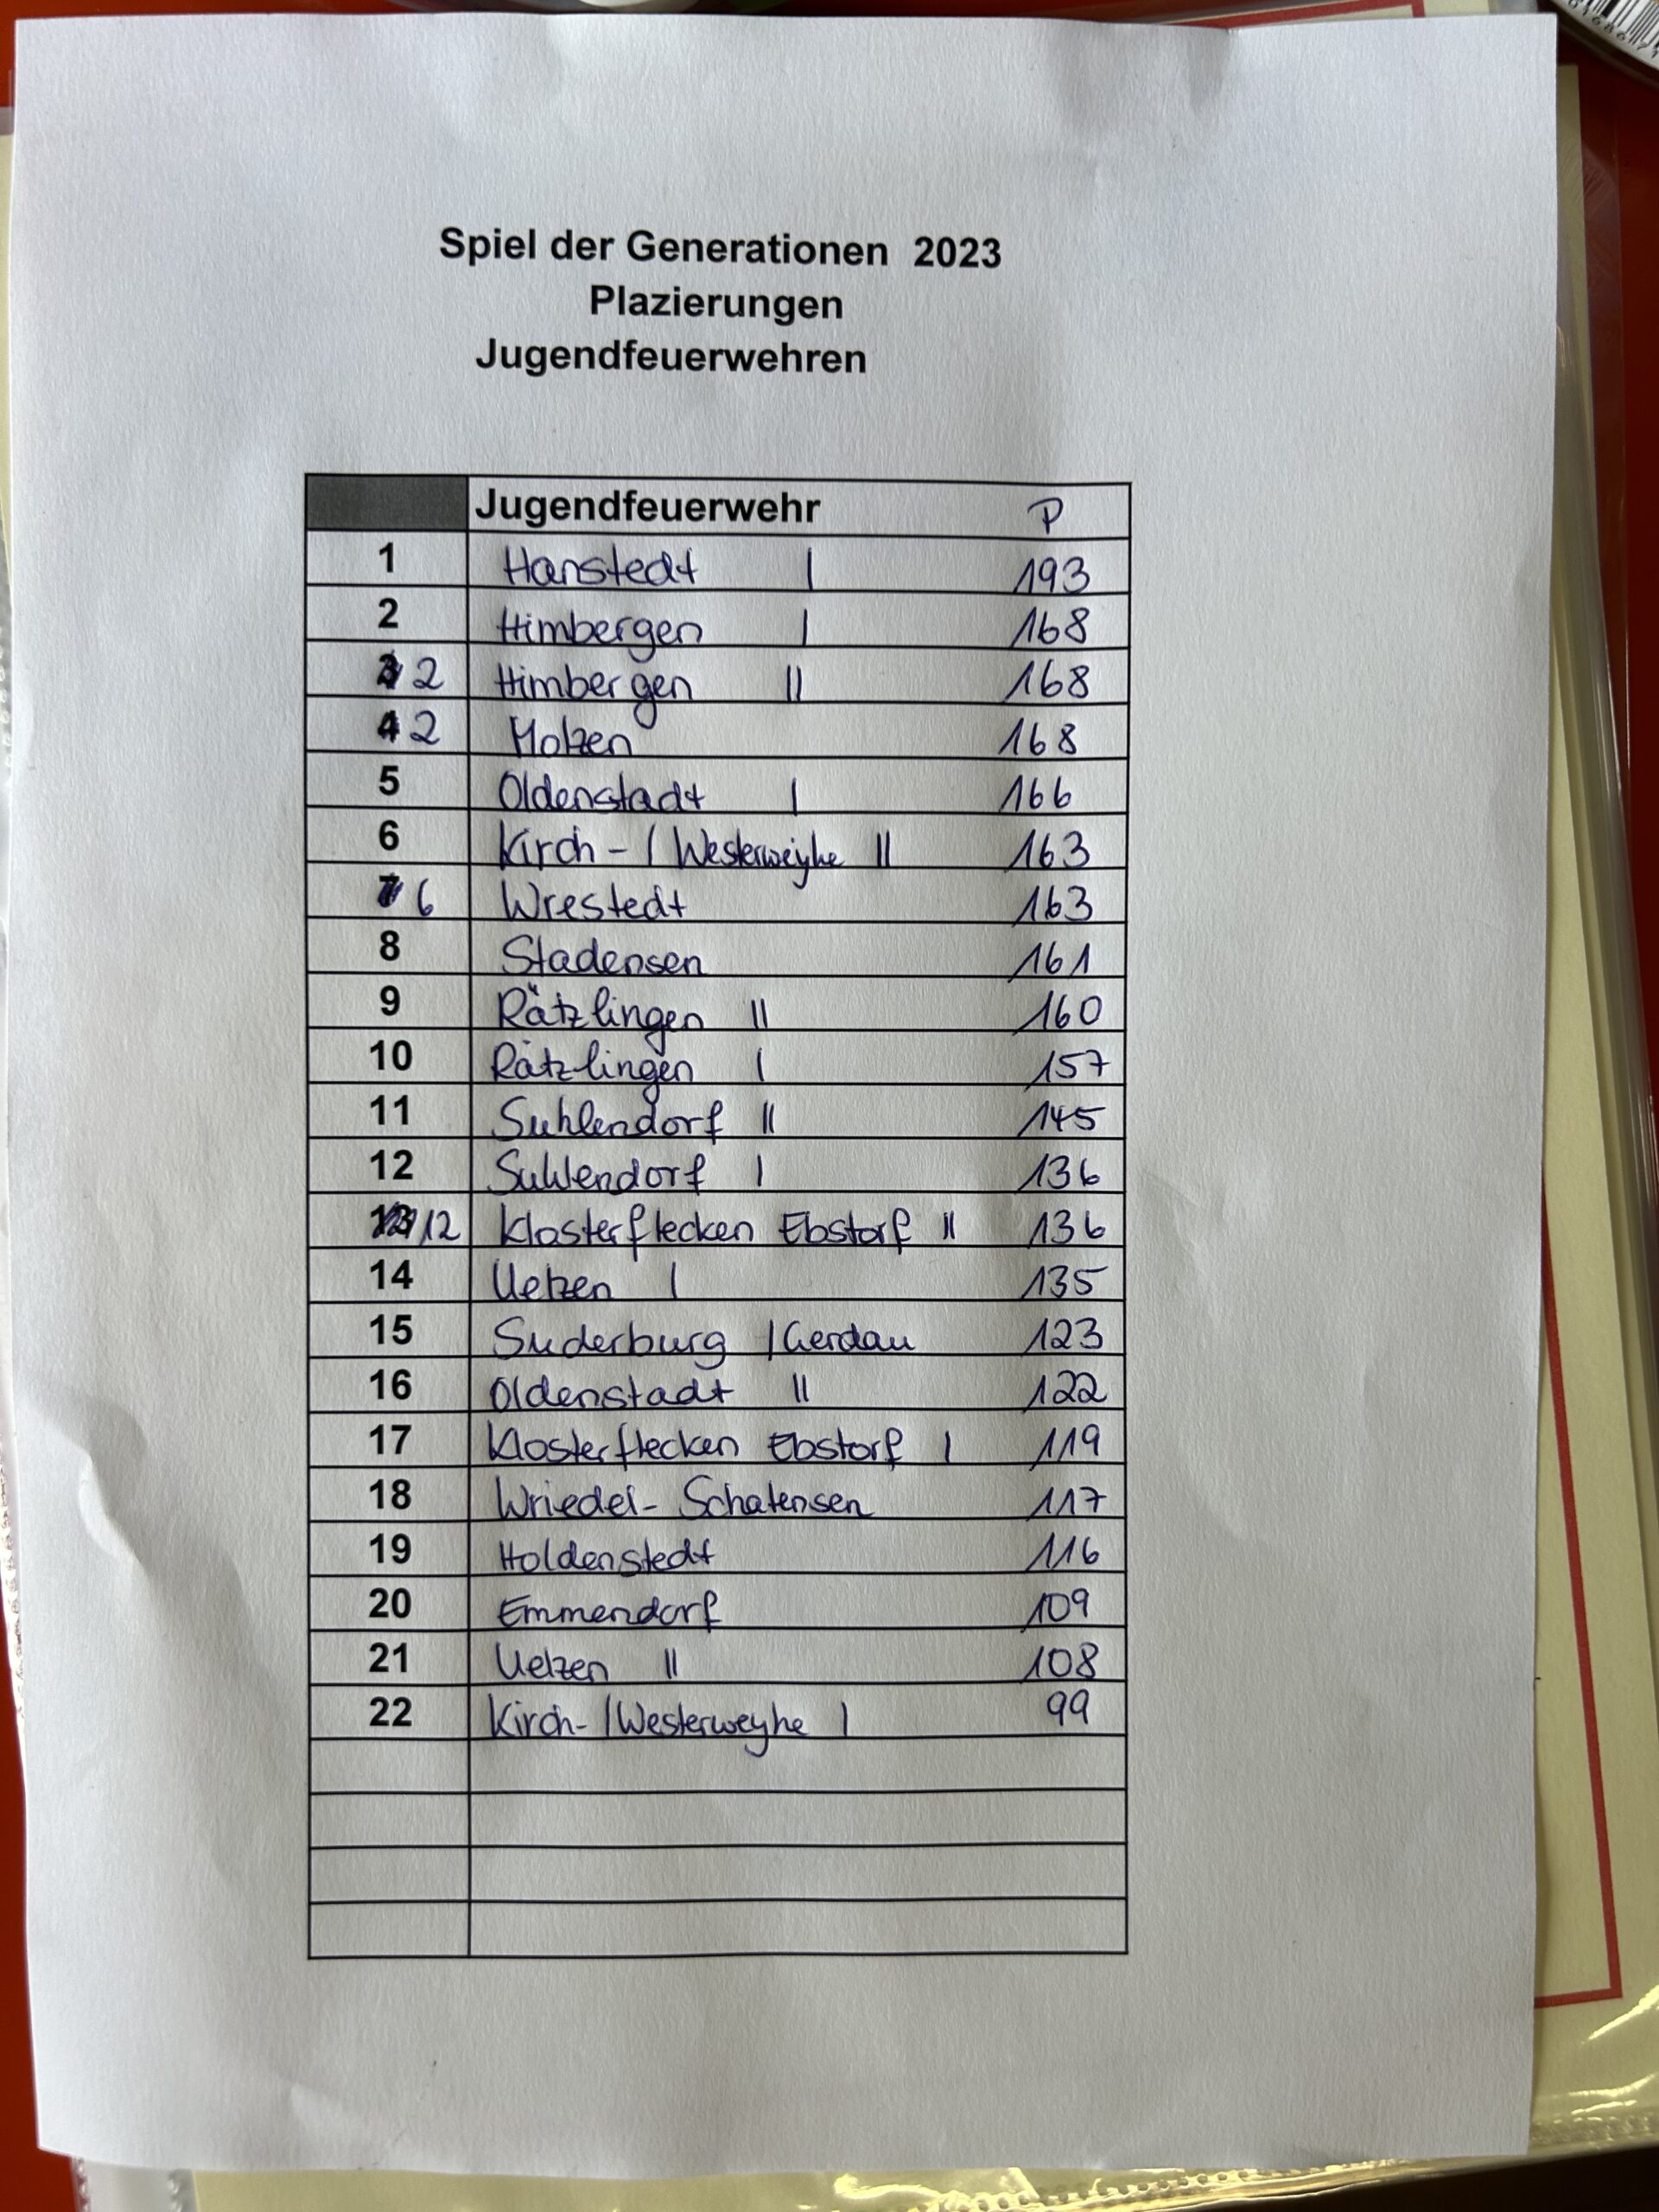 Spiel der Generationen 2023
Plazierungen
Jugendfeuerwehren
Jugendfeuerwehr P
1 Hanstedt I 193
2 Himbergen I 168
3 2 Himbergen II 168
4 2 Molzen 168
5 Oldenstadt I 166
6 Kirch-/Westerweyhe II 163
7 6 Wrestedt 163
8 Stadensen 161
9 Rätzlingen II 160
10 Rätzlingen I 157
11 Suhlendorf II 145
12 Suhlendorf I 136
13 12 Klosterflecken Ebstorf II 136
14 Uelzen I 135
15 Suderburg /Gerdau 123
16 Oldenstadt II 122
17 Klosterflecken Ebstorf I 119
18 Wriedel-Schatensen 117
19 Holdenstedt 116
20 Emmendorf 109
21 Uelzen II 108
22 Kirch-/Westerweyhe I 99